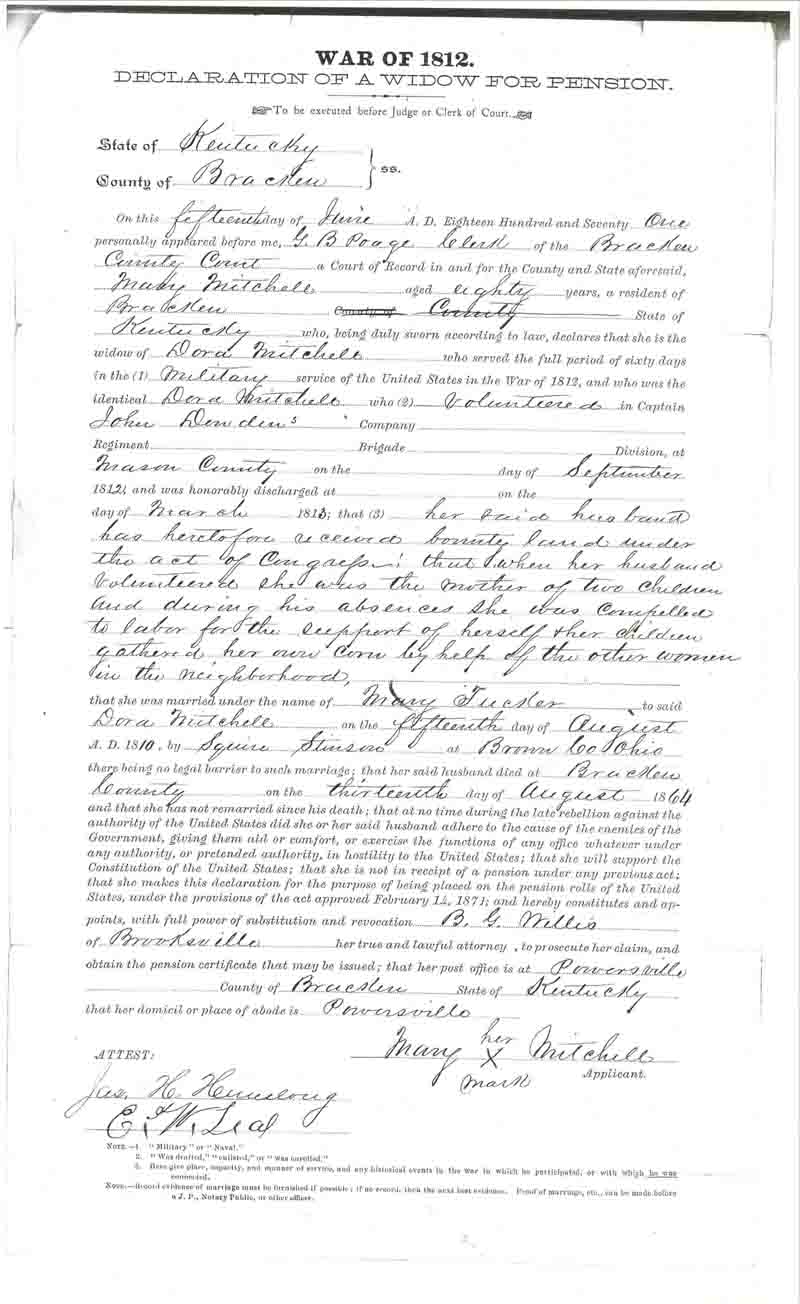 WAR OF 1812.
DECLARATION OF A WIDOW FOR PENSION.
To be executed before Judge or Clerk of Court.
State of Kentucky
County of Bracken } ss.
On this fifteenth day of June A. D. Eighteen Hundred and Seventy One
personally appeared before me, G. B Poage Clerk of the Bracken
County Court a Court of Record in and for the County and State aforesaid,
Mary Mitchell aged eighty years, a resident of
Bracken County of County State of
Kentucky who, being duly sworn according to law, declares that she is the
widow of Dora Mitchell who served the full period of sixty days
in the (1) Military service of the United States in the War of 1812, and who was the
identical Dora Mitchell who (2) Volunteered in Captain
John Dowden's Company
Regiment Brigade Division, at
Mason County on the day of September
1812; and was honorably discharged at on the
day of March 1813; that (3) her said husband
has heretofore received bounty land under
the act of Congress; that when her husband
Volunteered she was the mother of two children
and during his absences she was compelled
to labor for the support of herself & her children
gathered her own corn by help of the other women
in the neighborhood,
that she was married under the name of Mary Tucker to said
Dora Mitchell on the fifteenth day of August
A. D. 1810, by Squire Stinson at Brown Co Ohio
there being no legal barrier to such marriage; that her said husband died at Bracken
County on the thirteenth day of August 1864
and that she has not remarried since his death; that at no time during the late rebellion against the
authority of the United States did she or her said husband adhere to the cause of the enemies of the
Government, giving them aid or comfort, or exercise the functions of any office whatever under
any authority, or pretended authority, in hostility to the United States; that she will support the
Constitution of the United States; that she is not in receipt of a pension under any previous act;
that she makes this declaration for the purpose of being placed on the pension rolls of the United
States, under the provisions of the act approved February 14, 1871; and hereby constitutes and ap-
points, with full power of substitution and revocation B. G. Willis
of Brooksville her true and lawful attorney, to prosecute her claim, and
obtain the pension certificate that may be issued; that her post office is at Powersville
County of Bracken State of Kentucky
that her domicil or place of abode is Powersville
her
Mary X Mitchell
mark Applicant.
ATTEST:
Jas. H.
E. W. Leal
NOTE.—1. "Military" or "Naval."
2. "Was drafted," "enlisted," or "was enrolled."
3. Here give place, capacity, and manner of service, and any historical events in the war in which he participated, or with which he was
connected.
NOTE.—Record evidence of marriage must be furnished if possible; if no record, then the next best evidence. Proof of marriage, etc., can be made before
a J. P., Notary Public, or other officer.